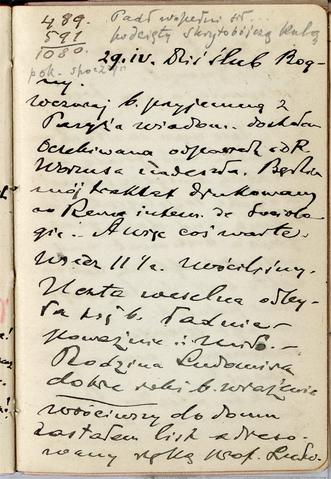 489.
591
1080.
Padł w pełni sił...
podcięty skrytobójczą kulą
pok. spocz.
29.IV. Dziś ślub Reg-
ny.
wczoraj b. przyjemną z
Paryża wiadom. dostałem
Oczekiwana odpowiedź od R.
Wormsa nadeszła. Będzie
mój traktat drukowany
w Revue intern. de Sociolo-
gie. A więc coś warte.
Wiecz. 11½. Wróciliśmy.
Uczta weselna odby-
ła się b. ładnie -
poważnie i miło. -
Rodzina Ludomira
dobre robi b. wrażenie
wróciwszy do domu
zastałem list adreso-
wany ręką prof. Lutos.